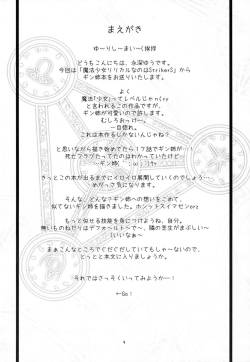 まえがき
ゆーりしーまいーく隊隊
どうもこんにちは、永深ゆうです。
今回は「魔法少女リリカルなのはStrikerS」から
ギン姉本をお送りいたします。
よく
魔法「少女」ってレベルじゃねぐy
と言われるこの作品ですが、
ギン姉が可愛いので許します。
むしろおっけー。
一目惚れ。
これは本作るしかないんじゃね？
と思いながら描き始めてたら17話でギン姉が…！
死亡フラグたってたのはわかっていたけど
きっとこの本が出るまでにイロイロ展開しているのでしょう…
めがっさ気になります。
そんな、どんな？ギン姉への想いをこめて、
似てないギン姉を描きました。ホンットスイマセンorz
もっと似せる技能を身につけようね、自分。
無いものねだりはデフォールトで～、隣の芝生がまぶしぃ～
いいなぁ～
まぁこんなところでぐだぐだしていてもしゃ～ないので、
とっとと本文に入りましょうか。
それではさっそくいってみようかー！
←Go！
4